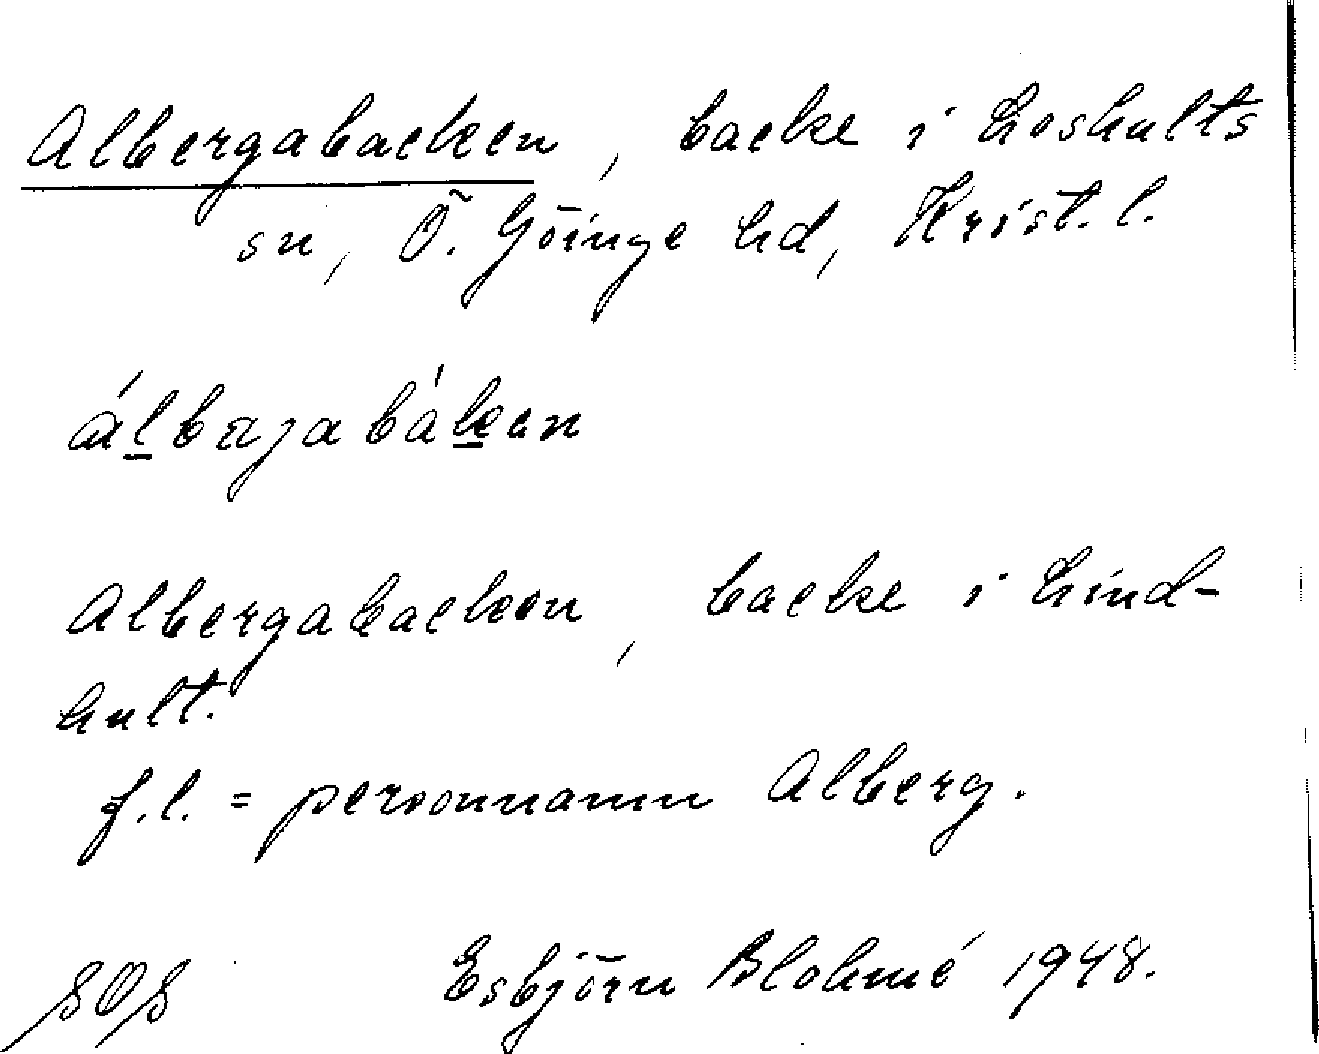 Albergabacken, backe i Loshults
sn, Ö. Göinge hd, Krist. l.
álbærjabákan
Albergabacken, backe i Lind-
hult.
f.l. = personnamn Alberg.
Esbjörn Blohmé 1948.